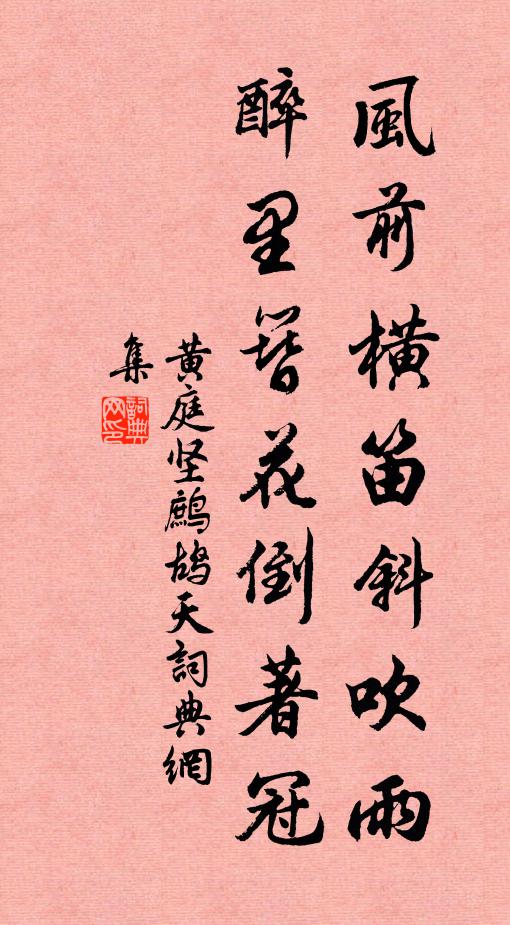 風前橫笛斜吹雨
醉里簪花倒著冠
黄庭坚鷓鴣天詞典網
集
詞典
网印